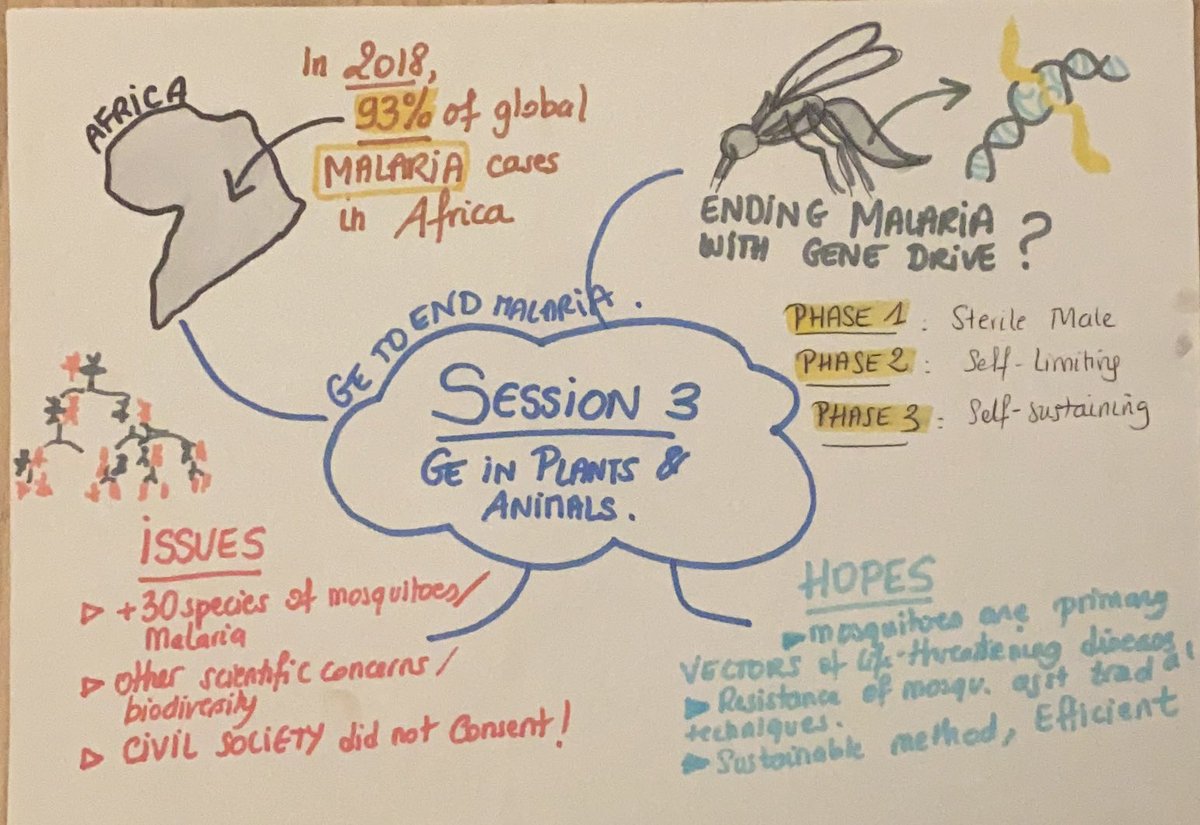 AFRICA
In 2018,
93% of global
MALARIA cases
in Africa
ENDING MALARIA
WITH GENE DRIVE ?
PHASE 1 : Sterile Male
PHASE 2 : Self-Limiting
PHASE 3 : Self-sustaining
GE TO END MALARIA.
SESSION 3
GE IN PLANTS &
ANIMALS.
ISSUES
+30 species of mosquitoes/
Malaria
other scientific concerns/
biodiversity
CIVIL SOCIETY did not Consent!
HOPES
mosquitoes are primary
VECTORS of life-threatening diseases
Resistance of mosqu. agst trad al
techniques.
Sustainable method, Efficient